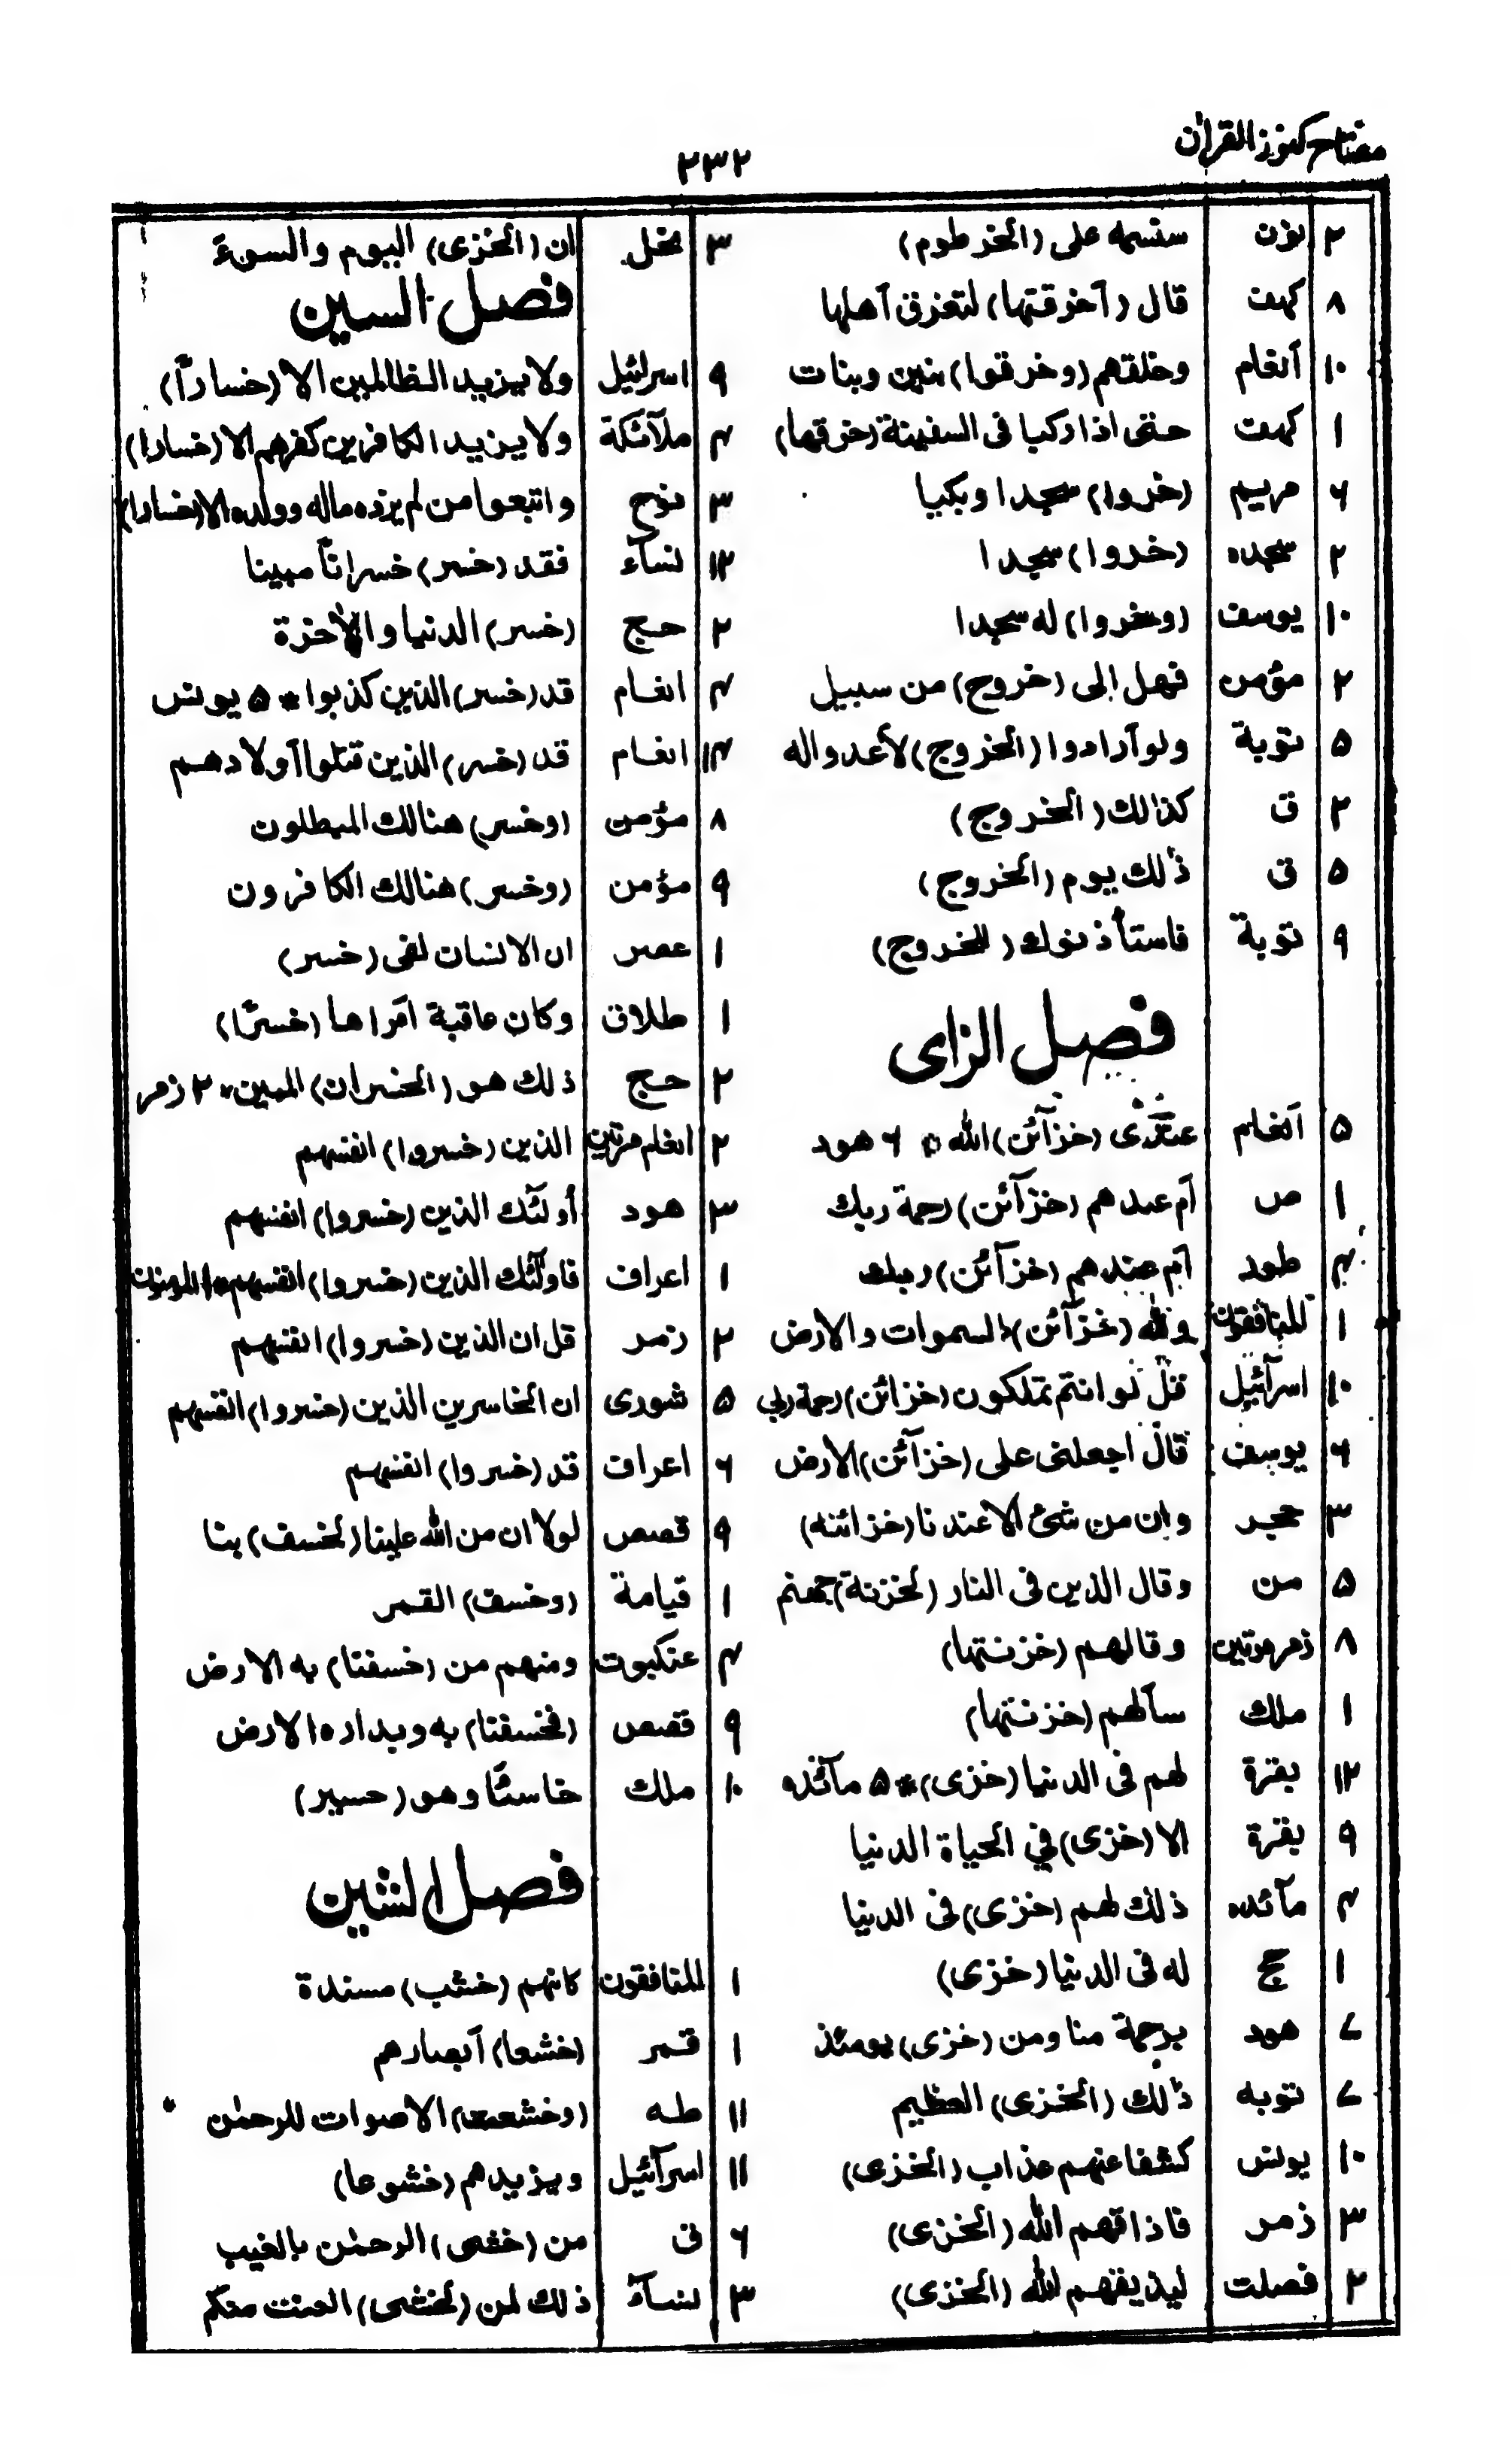 مفتاح كنوز القرآن
٢٣٢
٢ نون سنسمه على (الخرطوم)
٨ كهف قال (أخرقتها) لتغرق أهلها
١٠ أنعام وخلقهم (وخرقوا) بنين وبنات
١ كهف حتى اذا ركبا فى السفينة (خرقها)
٦ مريم (خروا) سجدا وبكيا
٢ سجده (خروا) سجدا
١٠ يوسف (وخروا) له سجدا
٢ مؤمن فهل إلى (خروج) من سبيل
٥ توبة ولو أرادوا (الخروج) لأعدوا له
٢ ق كذالك (الخروج)
٥ ق ذلك يوم (الخروج)
٩ توبة فاستأذنوك (للخروج)
فصل الزاى
٥ أنعام عندى (خزآئن) الله * ٦ هود
١ ص أم عندهم (خزآئن) رحمة ربك
٢ طود أم عندهم (خزآئن) ربك
١ المنافقون ولله (خزآئن) السموات والارض
١٠ اسرآئيل قل لو انتم تملكون (خزائن) رحمة ربى
٦ يوسف قال اجعلنى على (خزآئن) الارض
٣ حجر وإن من شئ الا عندنا (خزائنه)
٥ من وقال الذين فى النار (لخزنة) جهنم
٨ زمر مرتين وقال لهم (خزنتها)
١ ملك سألهم (خزنتها)
١٢ بقرة لهم فى الدنيا (خزى) * ٥ مآئده
٩ بقرة الا (خزى) في الحياة الدنيا
٤ مآئده ذلك لهم (خزى) فى الدنيا
١ حج له فى الدنيا (خزى)
٧ هود برحمة منا ومن (خزى) يومئذ
٧ توبه ذلك (الخزى) العظيم
١٠ يونس كشفنا عنهم عذاب (الخزى)
٣ زمر فاذاقهم الله (الخزى)
٢ فصلت ليذيقهم الله (الخزى)
٣ نحل ان (الخزى) اليوم والسوء
فصل السين
٩ اسرائيل ولا يزيد الظالمين الا (خساراً)
٤ ملآئكة ولا يزيد الكافرين كفرهم الا (خسارا)
٣ نوح واتبعوا من لم يزده ماله وولده الا (خسارا)
١٢ نسآء فقد (خسر) خسراناً مبينا
٢ حج (خسر) الدنيا والآخرة
٤ انعام قد (خسر) الذين كذبوا * ٥ يونس
١٤ انعام قد (خسر) الذين قتلوا أولادهم
٨ مؤمن (وخسر) هنالك المبطلون
٩ مؤمن (وخسر) هنالك الكافرون
١ عصر ان الانسان لفى (خسر)
١ طلاق وكان عاقبة أمراها (خسرًا)
٢ حج ذلك هو (الخسران) المبين * ٢ زمر
٢ انعام مرتين الذين (خسروا) انفسهم
٣ هود أولئك الذين (خسروا) انفسهم
١ اعراف فاولئك الذين (خسروا) انفسهم * المومنون
٢ زمر قل ان الذين (خسروا) انفسهم
٥ شورى ان الخاسرين الذين (خسروا) انفسهم
٦ اعراف قد (خسروا) انفسهم
٩ قصص لولا ان من الله علينا (لخسف) بنا
١ قيامة (وخسف) القمر
٤ عنكبوت ومنهم من (خسفنا) به الارض
٩ قصص (فخسفنا) به وبداره الارض
١٠ ملك خاسئًا وهو (حسير)
فصل الشين
١ المنافقون كانهم (خشب) مسندة
١ قمر (خشعا) أبصارهم
١١ طه (وخشعت) الاصوات للرحمٰن
١١ اسرآئيل ويزيدهم (خشوعا)
٦ ق من (خشى) الرحمٰن بالغيب
٣ نسآء ذلك لمن (خشى) العنت منكم